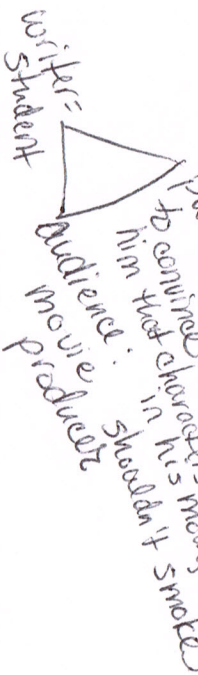 writer=
student
to convince
him that characters
in his movies
shouldn't smoke
audience:
movie
producer